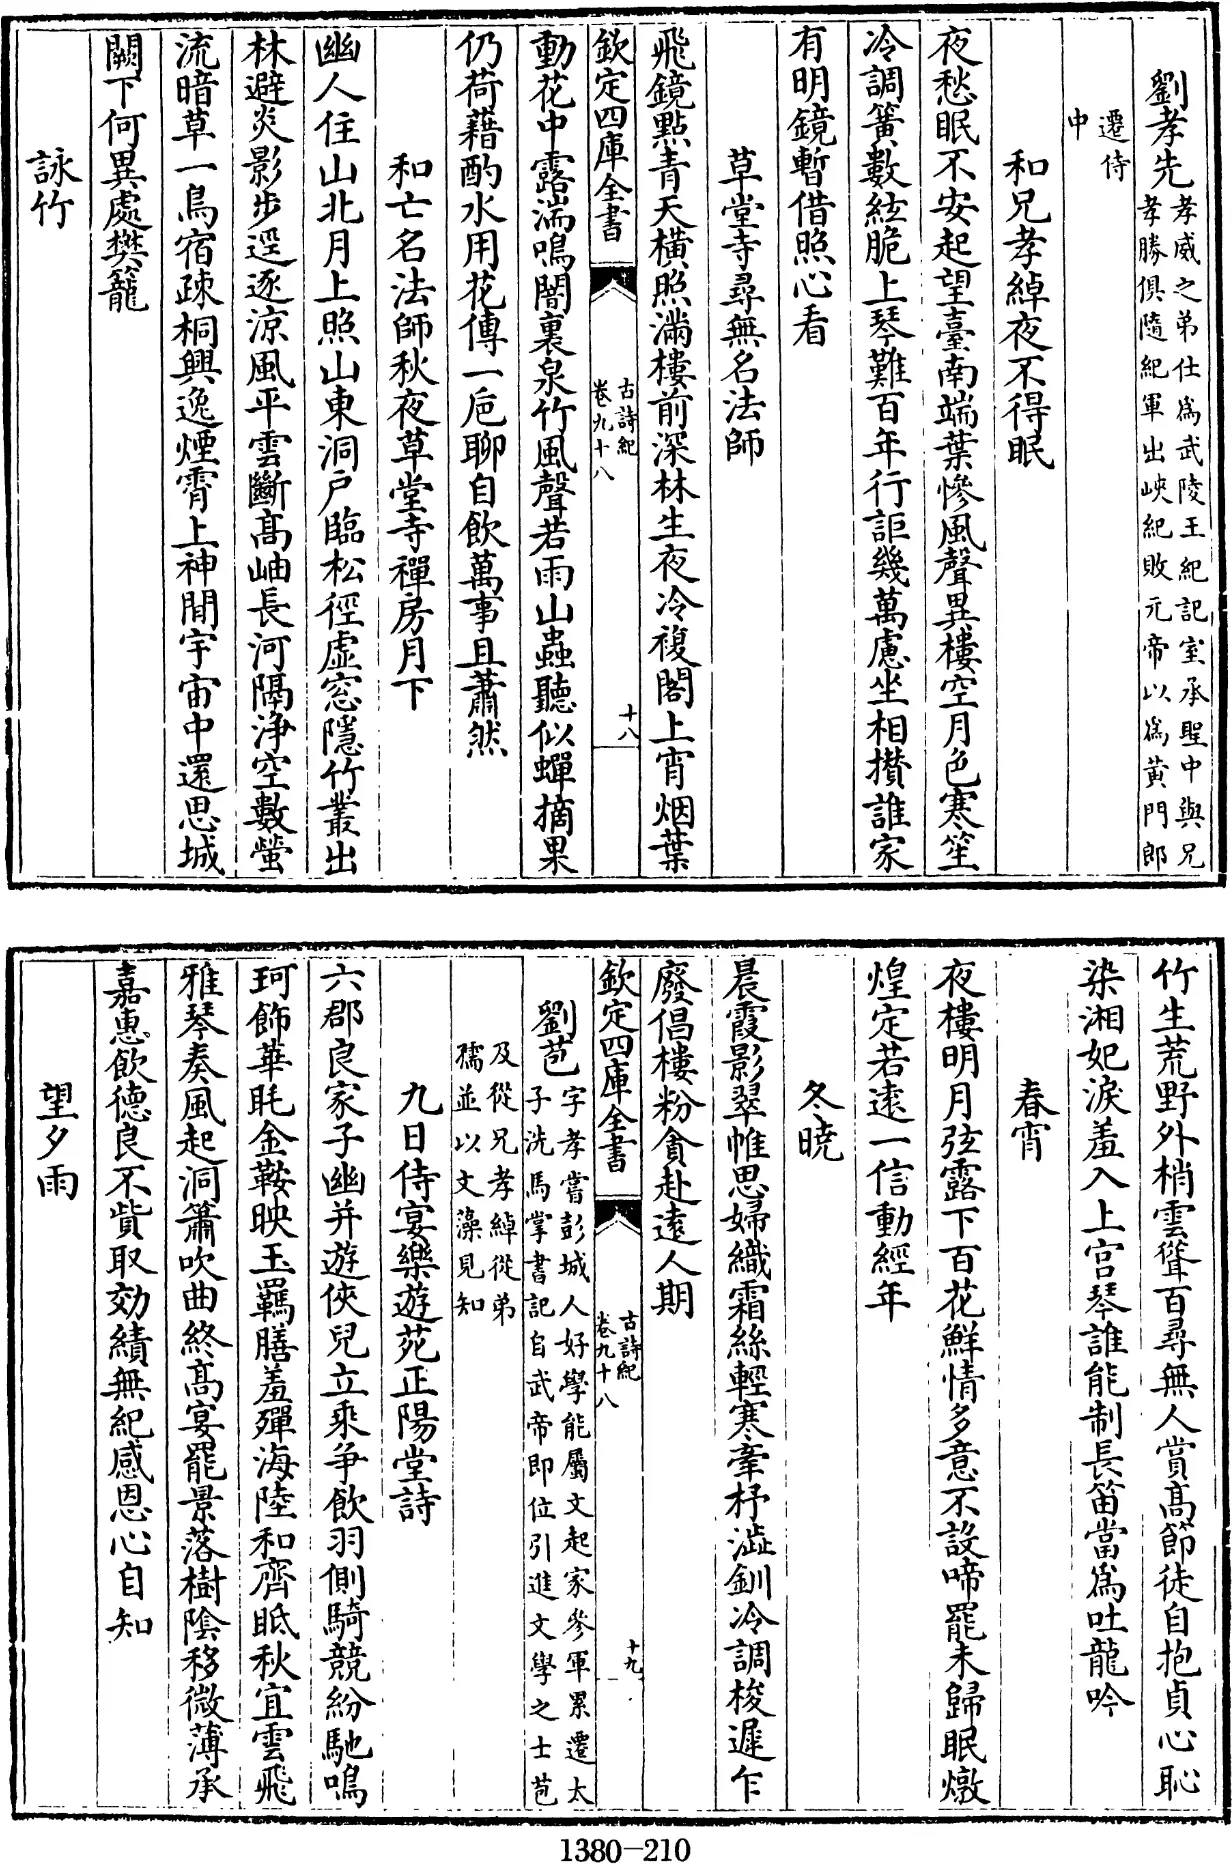 劉孝先孝威之弟仕為武陵王紀記室承聖中與兄
孝勝俱隨紀軍出峽紀敗元帝以為黃門郎
遷侍
中
和兄孝綽夜不得眠
夜愁眠不安起望臺南端葉慘風聲異樓空月色寒笙
冷調簧數絃脆上琴難百年行詎幾萬慮坐相攢誰家
有明鏡暫借照心看
草堂寺尋無名法師
飛鏡點青天橫照滿樓前深林生夜冷複閣上宵烟葉
欽定四庫全書
古詩紀
卷九十八
十八
動花中露湍鳴闇裏泉竹風聲若雨山蟲聽似蟬摘果
仍荷藉酌水用花傳一卮聊自飲萬事且蕭然
和亡名法師秋夜草堂寺禪房月下
幽人住山北月上照山東洞戶臨松徑虛窓隱竹叢出
林避炎影步逕逐涼風平雲斷高岫長河隔淨空數螢
流暗草一鳥宿疎桐興逸煙霄上神閒宇宙中還思城
闕下何異處樊籠
詠竹
竹生荒野外梢雲聳百尋無人賞高節徒自抱貞心恥
染湘妃淚羞入上宮琴誰能制長笛當為吐龍吟
春宵
夜樓明月弦露下百花鮮情多意不設啼罷未歸眠燉
煌定若遠一信動經年
冬曉
晨霞影翠帷思婦織霜絲輕寒牽杼澁釧冷調梭遲乍
廢倡樓粉貪赴遠人期
欽定四庫全書
古詩紀
卷九十八
十九
劉苞字孝嘗彭城人好學能屬文起家參軍累遷太
子洗馬掌書記自武帝即位引進文學之士苞
及從兄孝綽從弟
孺並以文藻見知
九日侍宴樂遊苑正陽堂詩
六郡良家子幽并遊俠兒立乘爭飲羽側騎競紛馳鳴
珂飾華眊金鞍映玉羈膳羞殫海陸和齊眡秋宜雲飛
雅琴奏風起洞簫吹曲終高宴罷景落樹陰移微薄承
嘉惠飲德良不貲取効績無紀感恩心自知
望夕雨
1380-210